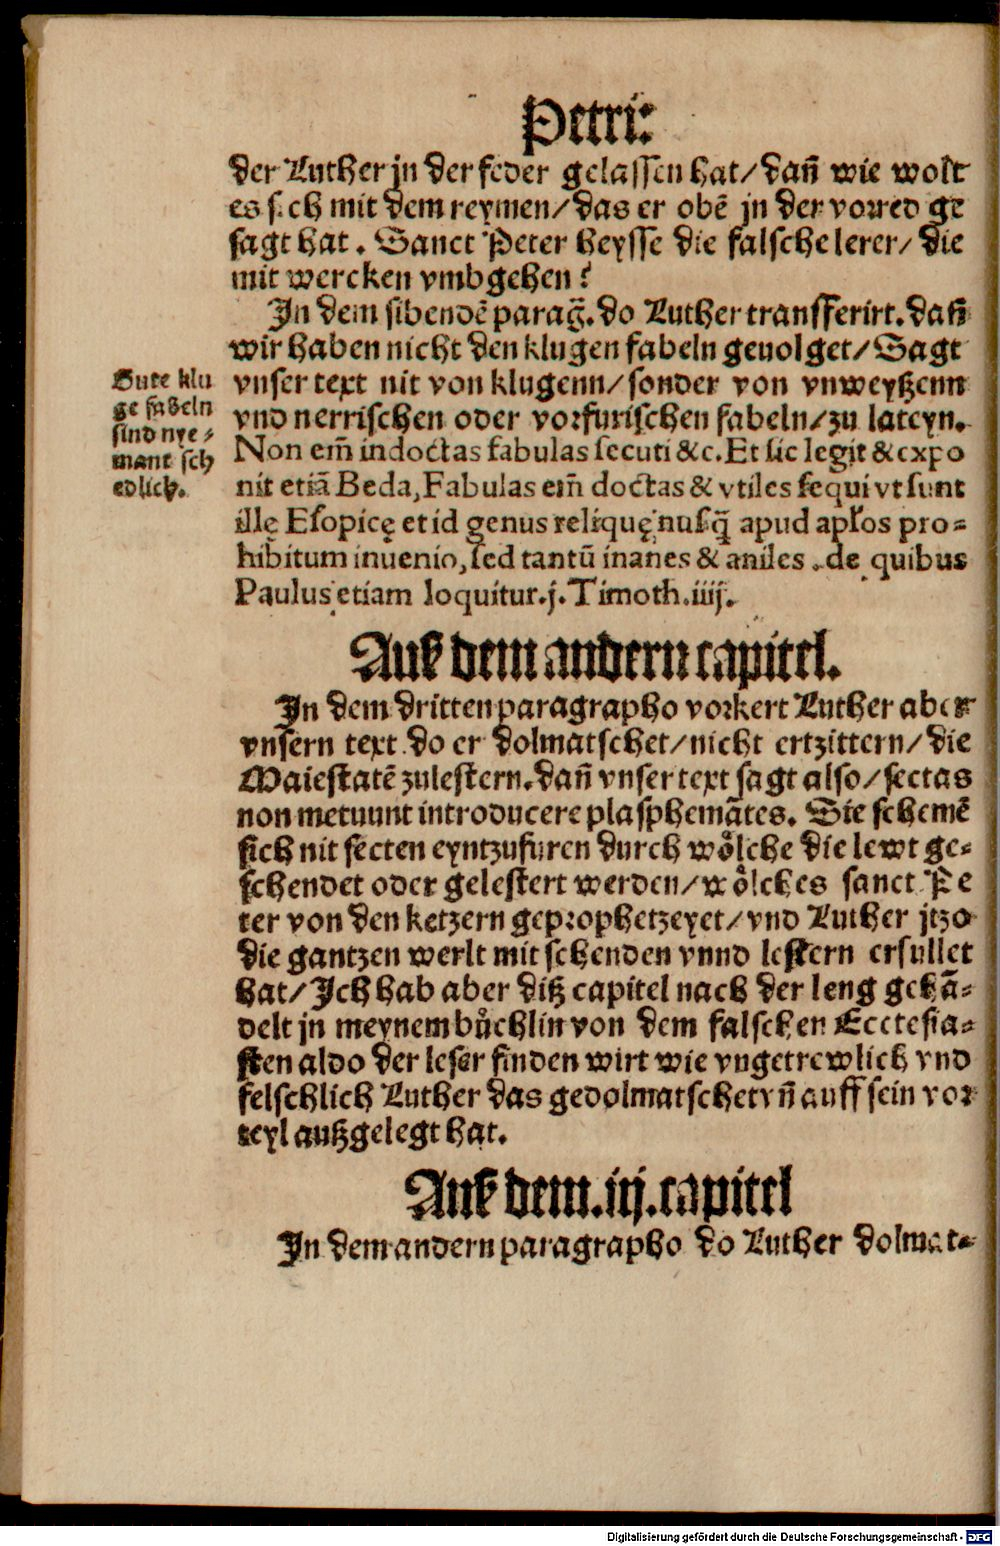 Petri:
der Luther jn der feder gelassen hat/dañ wie wolt
es sich mit dem reymen/das er obẽ jn der vorred ge
sagt hat. Sanct Peter heysse die falsche lerer/die
mit wercken vmbgehen?
In dem sibendẽ parag̃. do Luther transsferirt. dañ
wir haben nicht den klugen fabeln geuolget/Sagt
vnser text nit von klugenn/sonder von vnweyßenn
vnd nerrischen oder vorfurischen fabeln/zu lateyn.
Non em̃ indoctas fabulas secuti &c. Et sic legit & expo
nit etiã Beda, Fabulas em̃ doctas & vtiles sequi vt sunt
illę Esopicę et id genus reliquę, nusq̃ apud apłos pro-
hibitum inuenio, sed tantũ inanes & aniles. de quibus
Paulus etiam loquitur. j. Timoth. iiij.
Gute klu
ge fabeln
sind nye-
mant sch
edlich.
Auß dem andern capitel.
In dem dritten paragrapho vorkert Luther aber
vnsern text do er dolmatschet/nicht ertzittern/die
Maiestatẽ zulestern. dañ vnser text sagt also/sectas
non metuunt introducere plasphemãtes. Sie schemẽ
sich nit secten eyntzufuren durch wölche die lewt ge-
schendet oder gelestert werden/wölches sanct Pe
ter von den ketzern geprophetzeyet/vnd Luther jtzo
die gantzen werlt mit schenden vnnd lestern erfullet
hat/Ich hab aber ditz capitel nach der leng gehã-
delt jn meynem bůchlin von dem falschen Ecclesia-
sten aldo der leser finden wirt wie vngetrewlich vnd
felschlich Luther das gedolmatschet vñ auff sein vor
teyl außgelegt hat.
Auß dem. iij. capitel
In dem andern paragrapho do Luther dolmat-
Digitalisierung gefördert durch die Deutsche Forschungsgemeinschaft - DFG